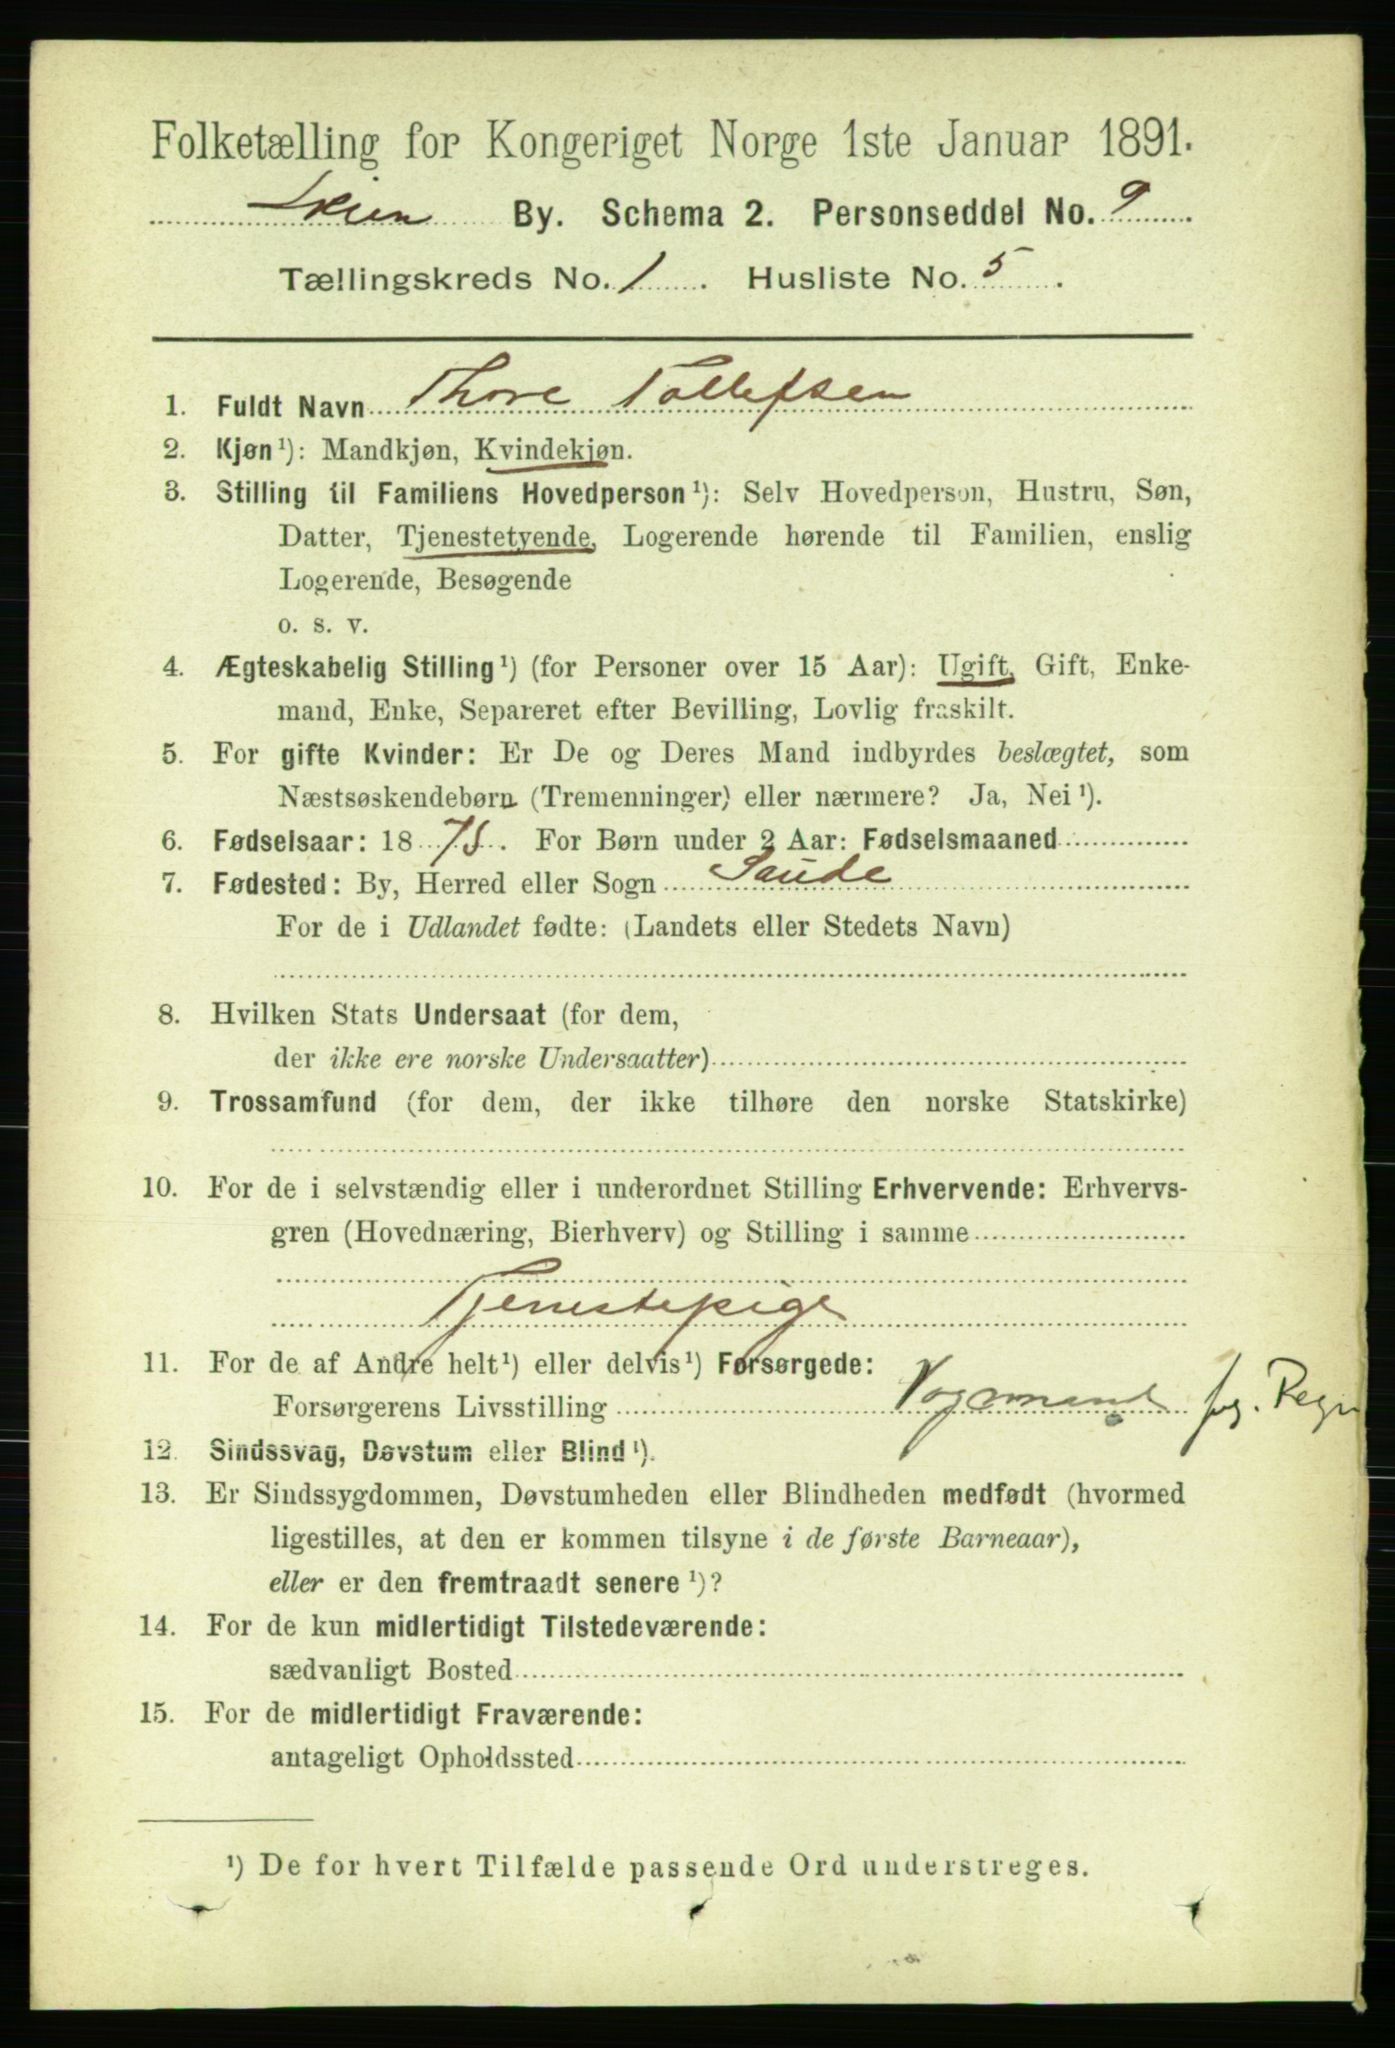 Folketælling for Kongeriget Norge 1ste Januar 1891.
Skien By. Schema 2. Personseddel No. 9
Tællingskreds No. 1. Husliste No. 5.
1. Fuldt Navn Thore Tollefsen
2. Kjøn¹): Mandkjøn, Kvindekjøn.
3. Stilling til Familiens Hovedperson¹): Selv Hovedperson, Hustru, Søn,
Datter, Tjenestetyende, Logerende hørende til Familien, enslig
Logerende, Besøgende
o. s. v.
4. Ægteskabelig Stilling¹) (for Personer over 15 Aar): Ugift, Gift, Enke-
mand, Enke, Separeret efter Bevilling, Lovlig fraskilt.
5. For gifte Kvinder: Er De og Deres Mand indbyrdes beslægtet, som
Næstsøskendebørn (Tremenninger) eller nærmere? Ja, Nei¹).
6. Fødselsaar: 1875. For Børn under 2 Aar: Fødselsmaaned
7. Fødested: By, Herred eller Sogn Saude
For de i Udlandet fødte: (Landets eller Stedets Navn)
8. Hvilken Stats Undersaat (for dem,
der ikke ere norske Undersaatter)
9. Trossamfund (for dem, der ikke tilhøre den norske Statskirke)
10. For de i selvstændig eller i underordnet Stilling Erhvervende: Erhvervs-
gren (Hovednæring, Bierhverv) og Stilling i samme
Tjenestepige
11. For de af Andre helt¹) eller delvis¹) Forsørgede:
Forsørgerens Livsstilling Vognmand
12. Sindssvag, Døvstum eller Blind¹).
13. Er Sindssygdommen, Døvstumheden eller Blindheden medfødt (hvormed
ligestilles, at den er kommen tilsyne i de første Barneaar),
eller er den fremtraadt senere¹)?
14. For de kun midlertidigt Tilstedeværende:
sædvanligt Bosted
15. For de midlertidigt Fraværende:
antageligt Opholdssted
¹) De for hvert Tilfælde passende Ord understreges.